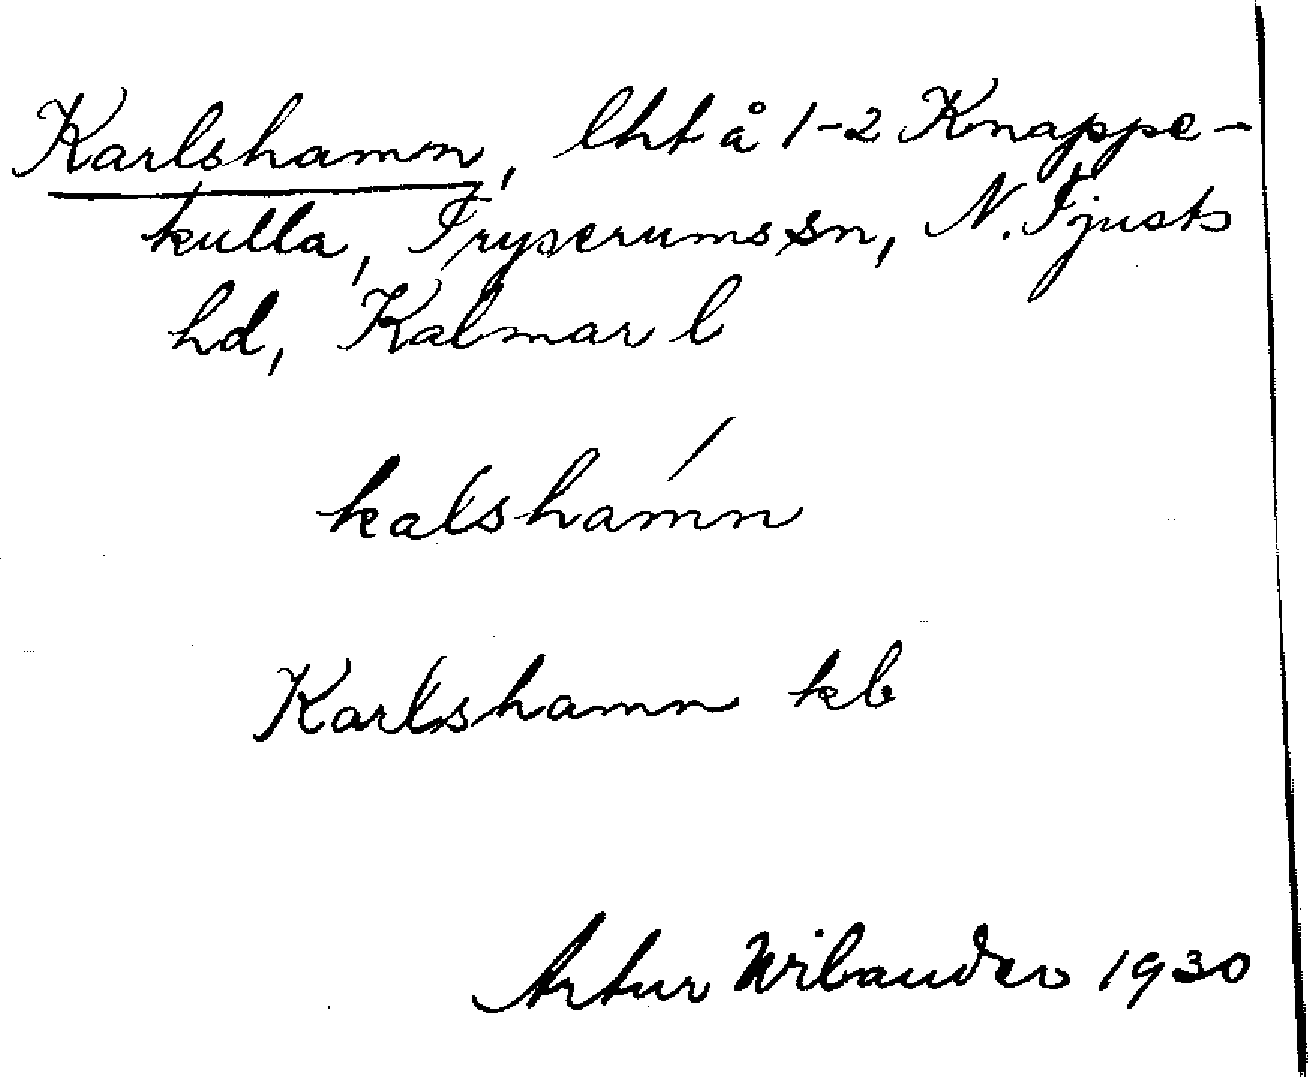 Karlshamn, lht å 1-2 Knappe-
kulla, Tryserums sn, N. Tjusts
hd, Kalmar l
kalshámn
Karlshamn kb
Artur Wilander 1930